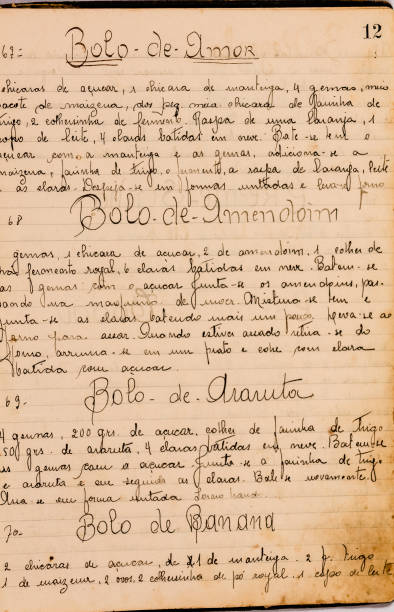 12
67= Bolo-de-Amor
chicaras de açucar, 1 chicara de manteiga, 4 gemas, meio
pacote de maizena, dos peq. meia chicara de farinha de
trigo, 2 colhersinha de fermento. Raspa de uma laranja, 1
copo de leite, 4 claras batidas em neve. Bate-se bem o
açucar com a manteiga e as gemas, adiciona-se a
maizena, farinha de trigo, o fermento, a raspa de laranja, leite
e as claras. Despeja-se em formas untadas e leva forno
68 Bolo-de-Amendoim
gemas, 1 chicara de açucar, 2 de amendoim, 1 colher de
fermento royal, 6 claras batidas em neve. Batem-se
as gemas com o açucar junta-se os amendoins, pas-
sando na maquina de moer. Mistura-se bem e
junta-se as claras batendo mais um pouco, leva-se ao
forno para assar. Quando estiver assado retira-se do
forno, arruma-se em um prato e cobre com clara
batida com açucar.
69= Bolo-de-Araruta
4 gemas, 200 grs. de açucar, colher de farinha de trigo
150 grs. de araruta, 4 claras batidas em neve. Batem-se
as gemas com o açucar junta-se a farinha de trigo
e araruta e em seguida as claras. Bate-se novamente.
Assa-se em forma untada
70= Bolo de Banana
2 chicaras de açucar, de 1 de manteiga. 2 trigo
1 de maizena, 2 ovos, 2 colhersinha de pó royal, 1 copo de leite